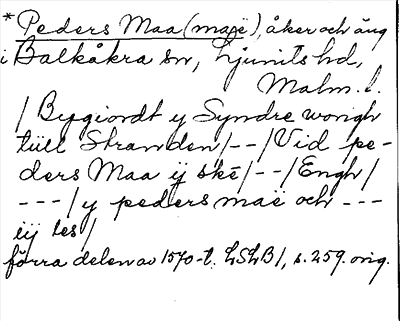 * Peders Maa (maë), åker och äng
i Balkåkra sn, Ljunits hd,
Malm. l.
/ Bygiordt y Syndre wongh
tüll Stranden /--/ Vid pe-
ders Maa ÿ skē /--/ Engh /
--- / y peders maë och ---
iÿ les /
förra delen av 1570-t. LSLB /, s. 259. orig.